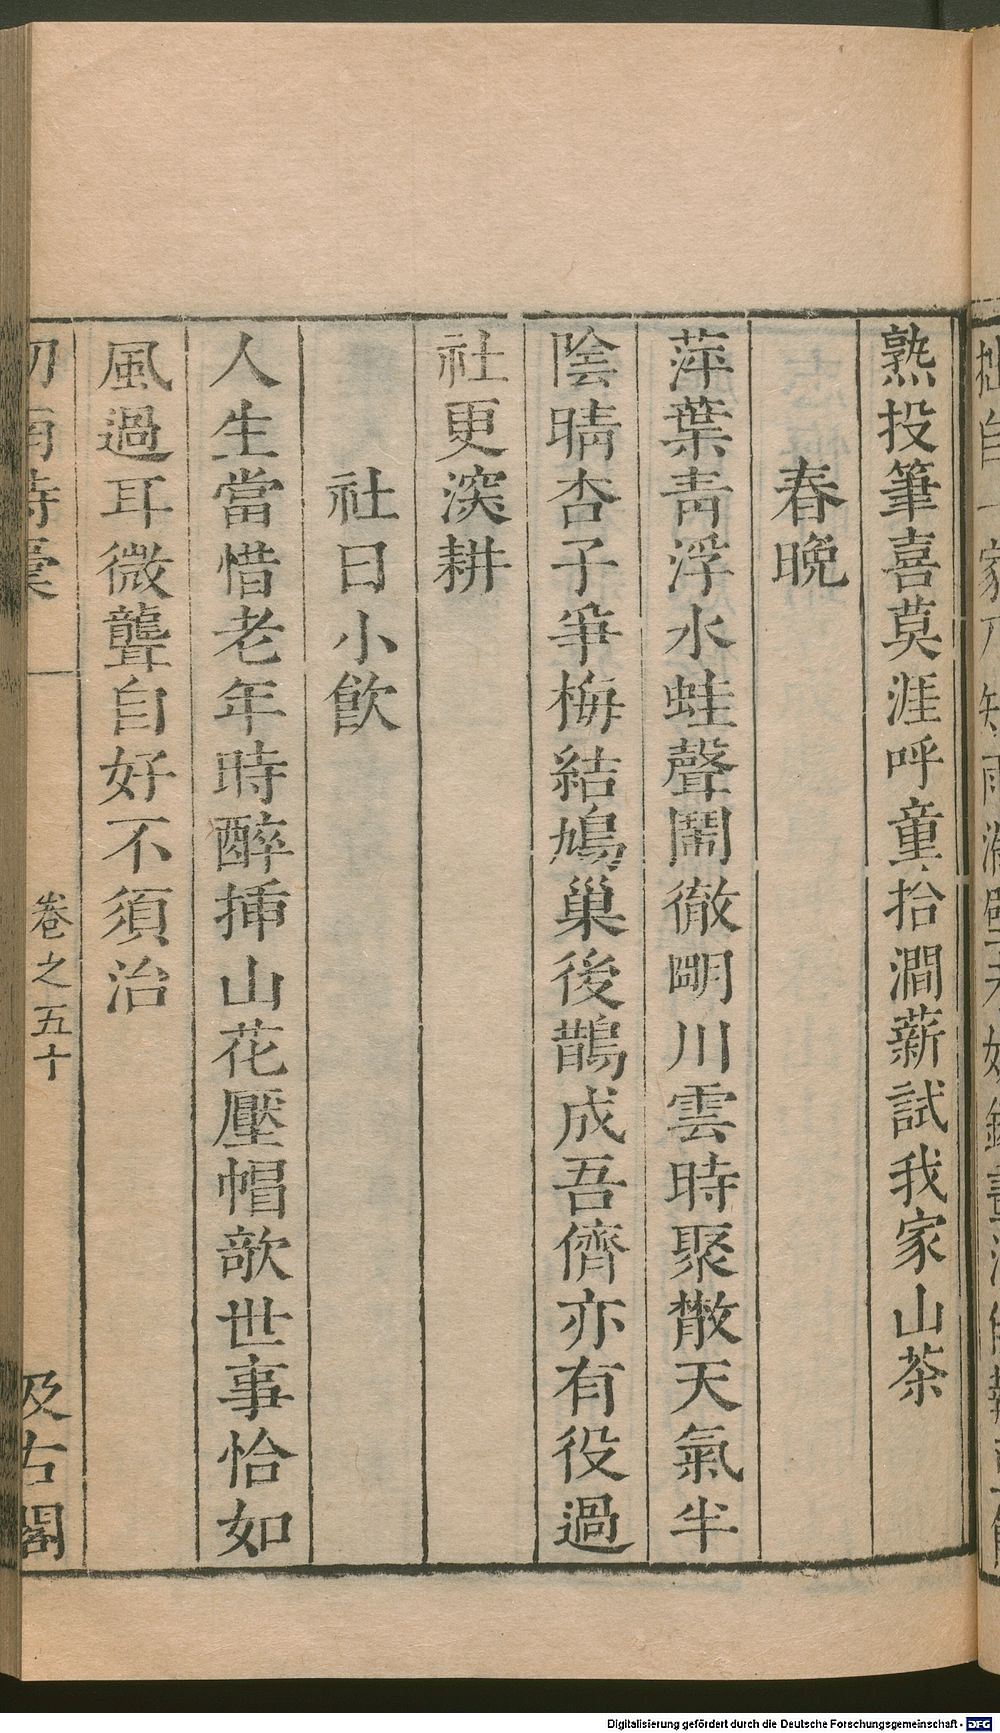 熟投筆喜莫涯呼童拾澗薪試我家山茶
春晚
萍葉青浮水蛙聲鬧徹明川雲時聚散天氣半
陰晴杏子爭梅結鳩巢後鵲成吾儕亦有役過
社更深耕
社日小飲
人生當惜老年時醉揷山花壓帽欹世事恰如
風過耳微聾自好不須治
卷之五十
及古閣
Digitalisierung gefördert durch die Deutsche Forschungsgemeinschaft - DFG